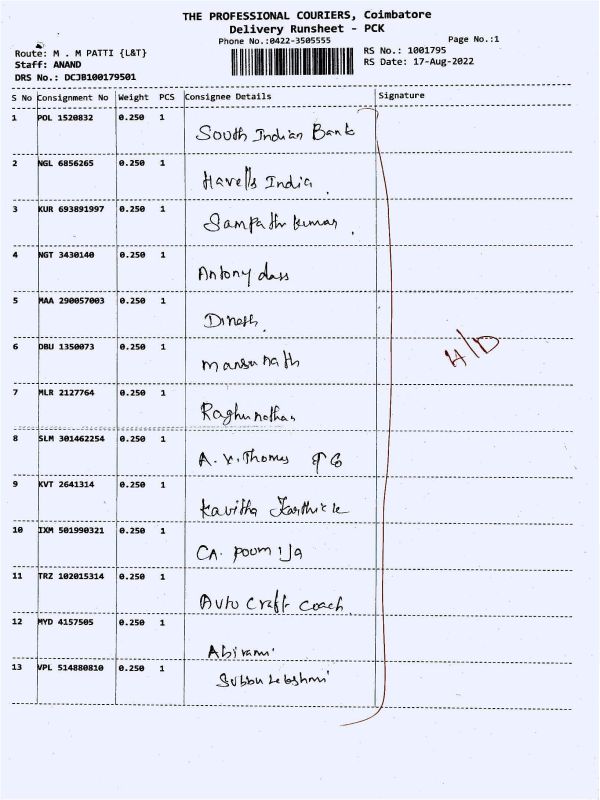 THE PROFESSIONAL COURIERS, Coimbatore
Delivery Runsheet - PCK
Phone No.:0422-3505555
Page No.:1
Route: M . M PATTI {L&T}
RS No.: 1001795
Staff: ANAND
RS Date: 17-Aug-2022
DRS No.: DCJB100179501
S No Consignment No Weight PCS Consignee Details Signature
1 POL 1520832 0.250 1 South Indian Bank
2 NGL 6856265 0.250 1 Havells India
3 KUR 693891997 0.250 1 Sampath kumar
4 NGT 3430140 0.250 1 Antony dass
5 MAA 290057003 0.250 1 Dinesh
6 DBU 1350073 0.250 1 manju nath
H/D
7 MLR 2127764 0.250 1 Raghunathan
8 SLM 301462254 0.250 1 A. V. Thomas
9 KVT 2641314 0.250 1 Kavitha Karthick
10 IXM 501990321 0.250 1 CA.
11 TRZ 102015314 0.250 1 Auto craft coach
12 MYD 4157505 0.250 1 Abirami
13 VPL 514880810 0.250 1 Subbu Lakshmi